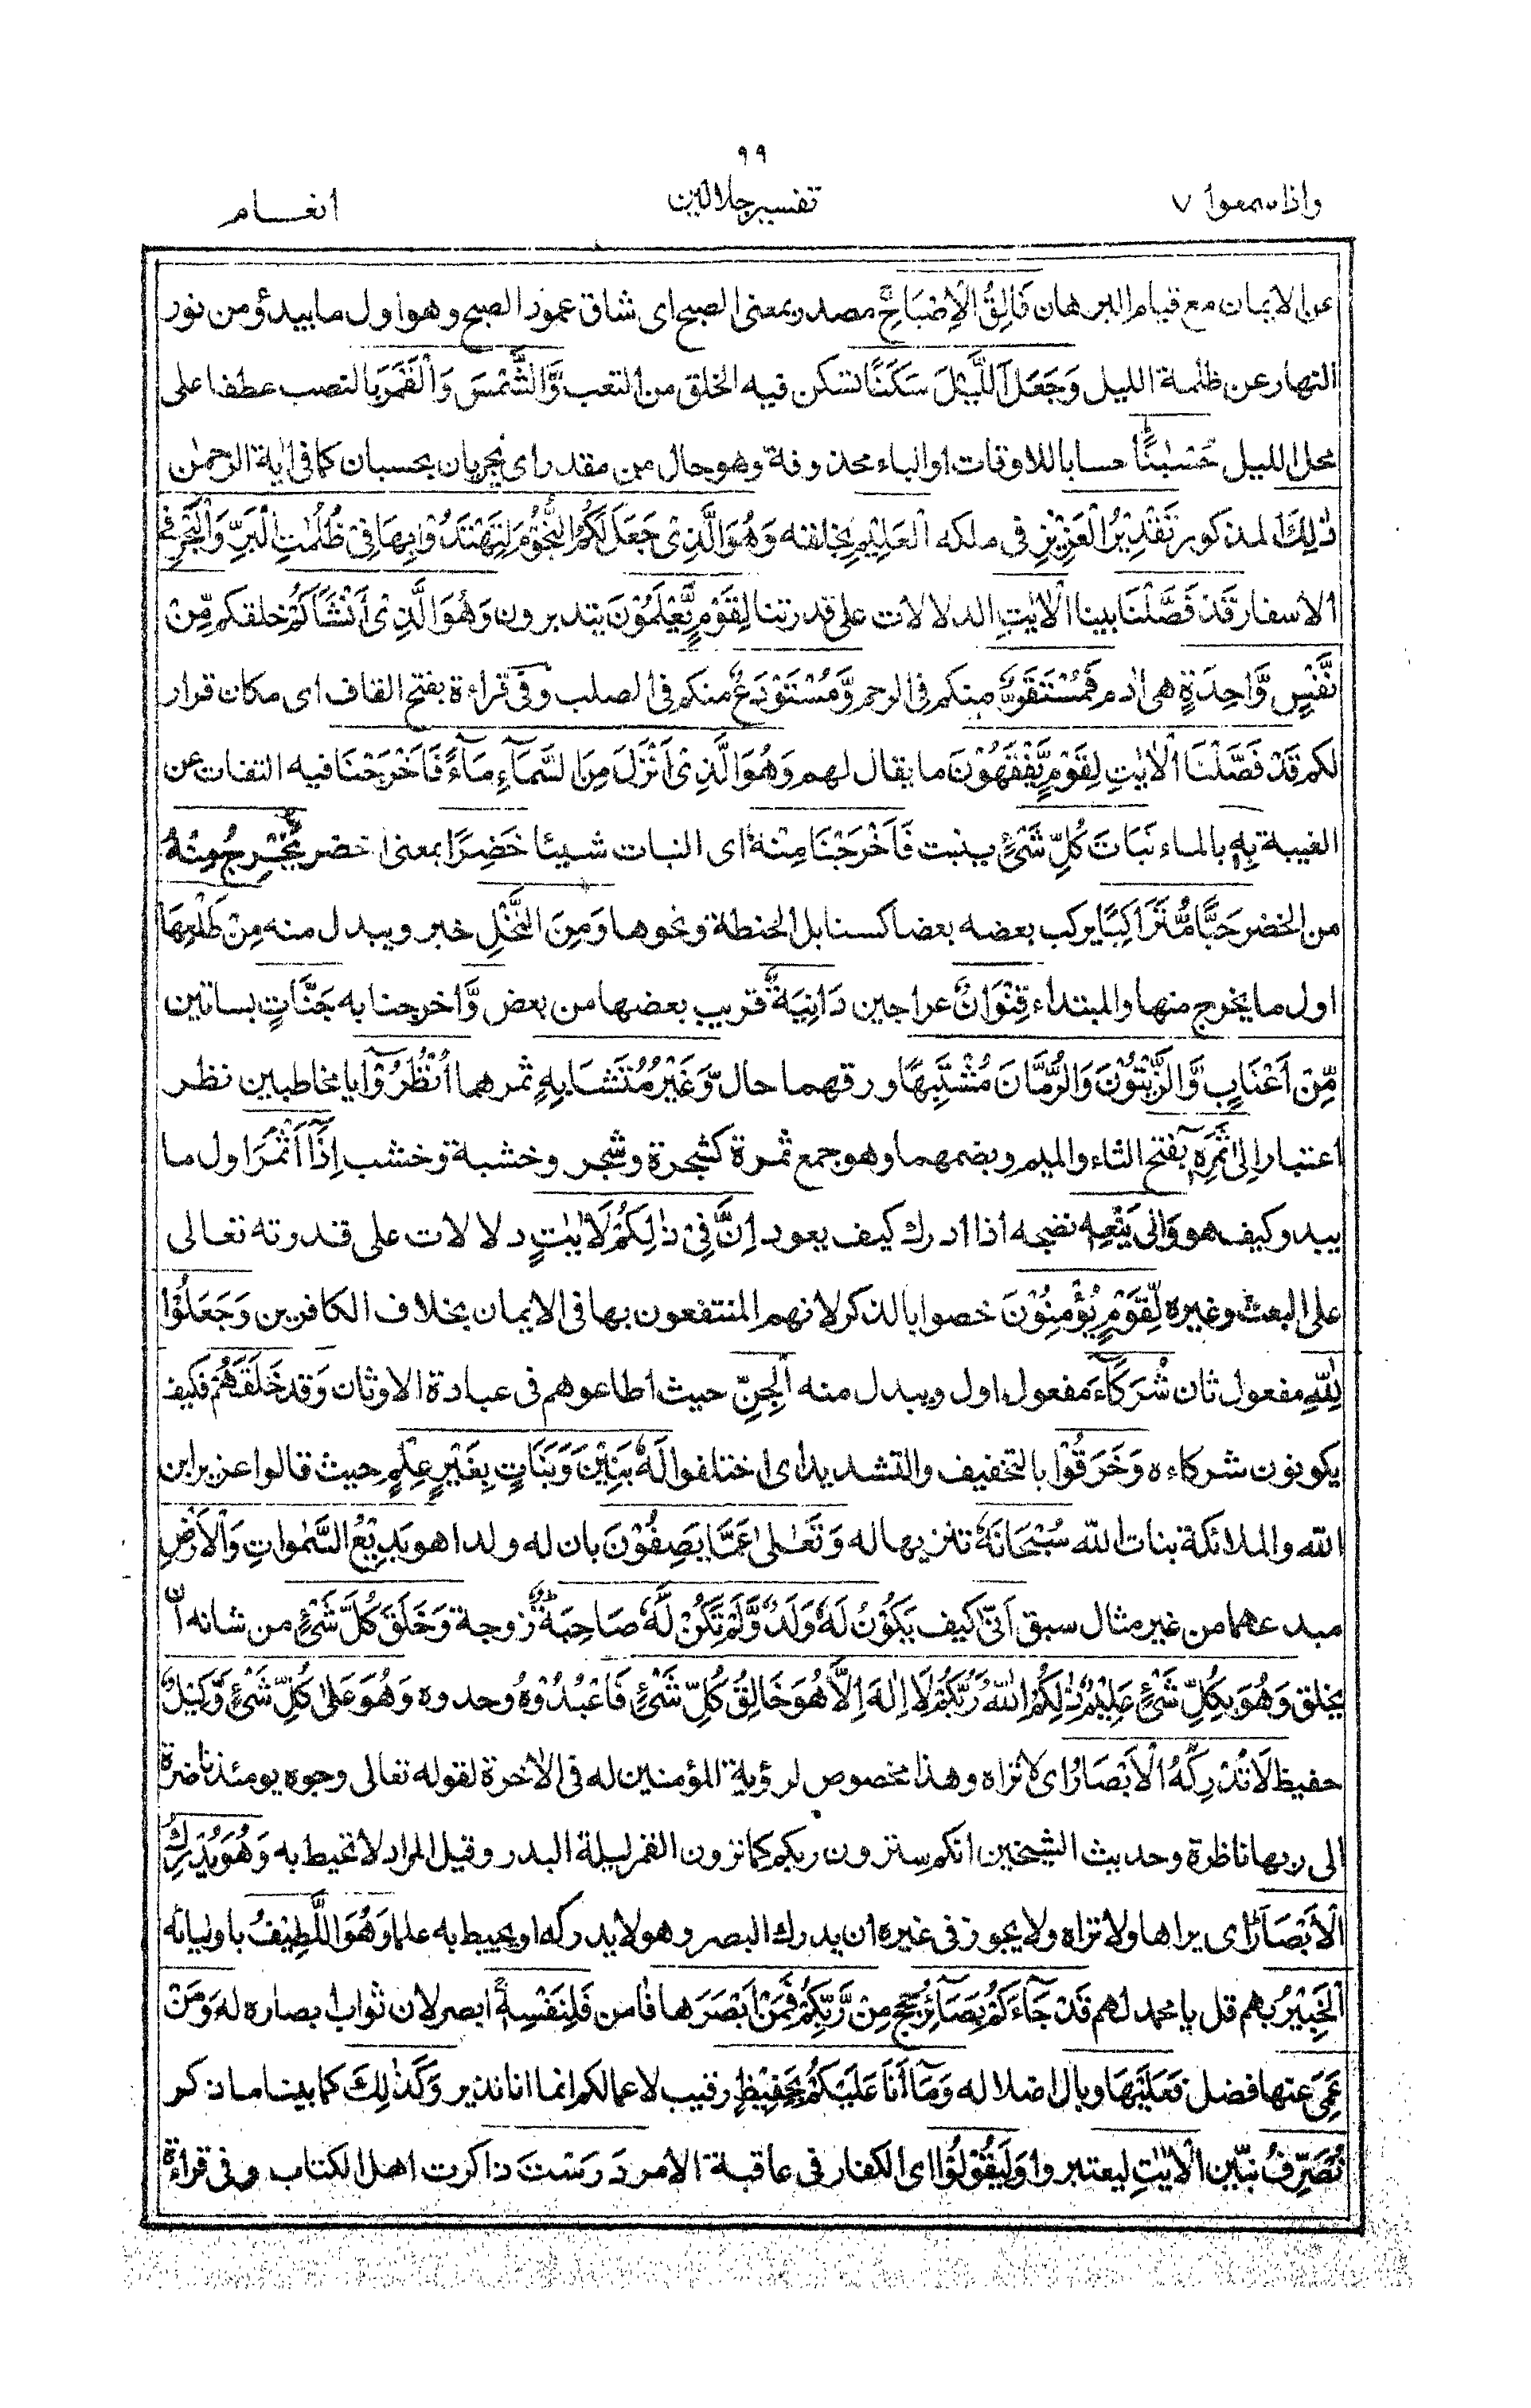 ٩٩
واذا سمعوا ٧
تفسير جلالين
انعـــام
عن الايمان مع قيام البرهان فَالِقُ الْاِصْبَاحِ مصدر بمعنى الصبح اى شاق عمود الصبح وهو اول ما يبدؤ من نور
النهار عن ظلمة الليل وَجَعَلَ الَّيْلَ سَكَنًا تسكن فيه الخلق من التعب وَّالشَّمْسَ وَالْقَمَرَ بالنصب عطفا على
محل الليل حُسْبَانًا حسابا للاوقات او الباء محذوفة وهو حال من مقدر اى يجريان بحسبان كما فى اٰية الرحمٰن
ذٰلِكَ المذكور تَقْدِيْرُ الْعَزِيْزِ فى ملكه الْعَلِيْمِ بخلقه وَهُوَ الَّذِىْ جَعَلَ لَكُمُ النُّجُوْمَ لِتَهْتَدُوْا بِهَا فِىْ ظُلُمٰتِ الْبَرِّ وَالْبَحْرِ فى
الاسفار قَدْ فَصَّلْنَا بينا الْاٰيٰتِ الدلالات على قدرتنا لِقَوْمٍ يَّعْلَمُوْنَ يتدبرون وَهُوَ الَّذِىْ اَنْشَاَكُمْ خلقكم مِّنْ
نَّفْسٍ وَّاحِدَةٍ هى اٰدم فَمُسْتَقَرٌّ منكم فى الرحم وَّمُسْتَوْدَعٌ منكم فى الصلب وفى قراءة بفتح القاف اى مكان قرار
لكم قَدْ فَصَّلْنَا الْاٰيٰتِ لِقَوْمٍ يَّفْقَهُوْنَ ما يقال لهم وَهُوَ الَّذِىْ اَنْزَلَ مِنَ السَّمَآءِ مَآءً فَاَخْرَجْنَا فيه التفات عن
الغيبة بِهٖ بالماء نَبَاتَ كُلِّ شَىْءٍ ينبت فَاَخْرَجْنَا مِنْهُ اى النبات شيئا خَضِرًا بمعنى اخضر نُّخْرِجُ مِنْهُ
من الخضر حَبًّا مُّتَرَاكِبًا يركب بعضه بعضا كسنابل الحنطة ونحوها وَمِنَ النَّخْلِ خبر ويبدل منه مِنْ طَلْعِهَا
اول ما يخرج منها والمبتداء قِنْوَانٌ عراجين دَانِيَةٌ قريب بعضها من بعض وَّ اخرجنا به جَنّٰتٍ بساتين
مِّنْ اَعْنَابٍ وَّالزَّيْتُوْنَ وَالرُّمَّانَ مُشْتَبِهًا ورقهما حال وَّغَيْرَ مُتَشَابِهٍ ثمرهما اُنْظُرُوْٓا يا مخاطبين نظر
اعتبار اِلٰى ثَمَرِهٖٓ بفتح الثاء والميم وبضمهما وهو جمع ثمرة كشجرة وشجر وخشبة وخشب اِذَآ اَثْمَرَ اول ما
يبدو كيف هو وَ الٰى يَنْعِهٖ نضجه اذا ادرك كيف يعود اِنَّ فِىْ ذٰلِكُمْ لَاٰيٰتٍ دلالات على قدرته تعالى
على البعث وغيره لِّقَوْمٍ يُّؤْمِنُوْنَ خصوا بالذكر لانهم المنتفعون بها فى الايمان بخلاف الكافرين وَجَعَلُوْا
لِلّٰهِ مفعول ثان شُرَكَآءَ مفعول اول ويبدل منه الْجِنَّ حيث اطاعوهم فى عبادة الاوثان وَ قد خَلَقَهُمْ فكيف
يكونون شركاءه وَخَرَقُوْا بالتخفيف والتشديد اى اختلفوا لَهٗ بَنِيْنَ وَبَنَاتٍ بِغَيْرِ عِلْمٍ حيث قالوا عزير ابن
الله والملائكة بنات الله سُبْحَانَهٗ تنزيها له وَتَعٰلٰى عَمَّا يَصِفُوْنَ بان له ولدا هو بَدِيْعُ السَّمٰوٰتِ وَالْاَرْضِ
مبدعهما من غير مثال سبق اَنّٰى كيف يَكُوْنُ لَهٗ وَلَدٌ وَّلَمْ تَكُنْ لَّهٗ صَاحِبَةٌ زوجة وَخَلَقَ كُلَّ شَىْءٍ من شانه ان
يخلق وَهُوَ بِكُلِّ شَىْءٍ عَلِيْمٌ ذٰلِكُمُ اللّٰهُ رَبُّكُمْ لَا اِلٰهَ اِلَّا هُوَ خَالِقُ كُلِّ شَىْءٍ فَاعْبُدُوْهُ وحدوه وَهُوَ عَلٰى كُلِّ شَىْءٍ وَّكِيْلٌ
حفيظ لَا تُدْرِكُهُ الْاَبْصَارُ اى لا تراه وهذا مخصوص لرؤية المؤمنين له فى الاٰخرة لقوله تعالى وجوه يومئذ ناضرة
الى ربها ناظرة وحديث الشيخين انكم سترون ربكم كما ترون القمر ليلة البدر وقيل المراد لا تحيط به وَهُوَ يُدْرِكُ
الْاَبْصَارَ اى يراها ولا تراه ولا يجوز فى غيره ان يدرك البصر وهو لا يدركه او يحيط به علما وَهُوَ اللَّطِيْفُ باوليائه
الْخَبِيْرُ بهم قل يا محمد لهم قَدْ جَآءَكُمْ بَصَآئِرُ حجج مِنْ رَّبِّكُمْ فَمَنْ اَبْصَرَ ها فاٰمن فَلِنَفْسِهٖ ابصر لان ثواب ابصاره له وَمَنْ
عَمِىَ عنها فضل فَعَلَيْهَا وبال اضلاله وَمَآ اَنَا عَلَيْكُمْ بِحَفِيْظٍ رقيب لاعمالكم انما انا نذير وَكَذٰلِكَ كما بينا ما ذكر
نُصَرِّفُ نبين الْاٰيٰتِ ليعتبروا وَلِيَقُوْلُوْا اى الكفار فى عاقبة الامر دَرَسْتَ ذاكرت اهل الكتاب وفى قراءة